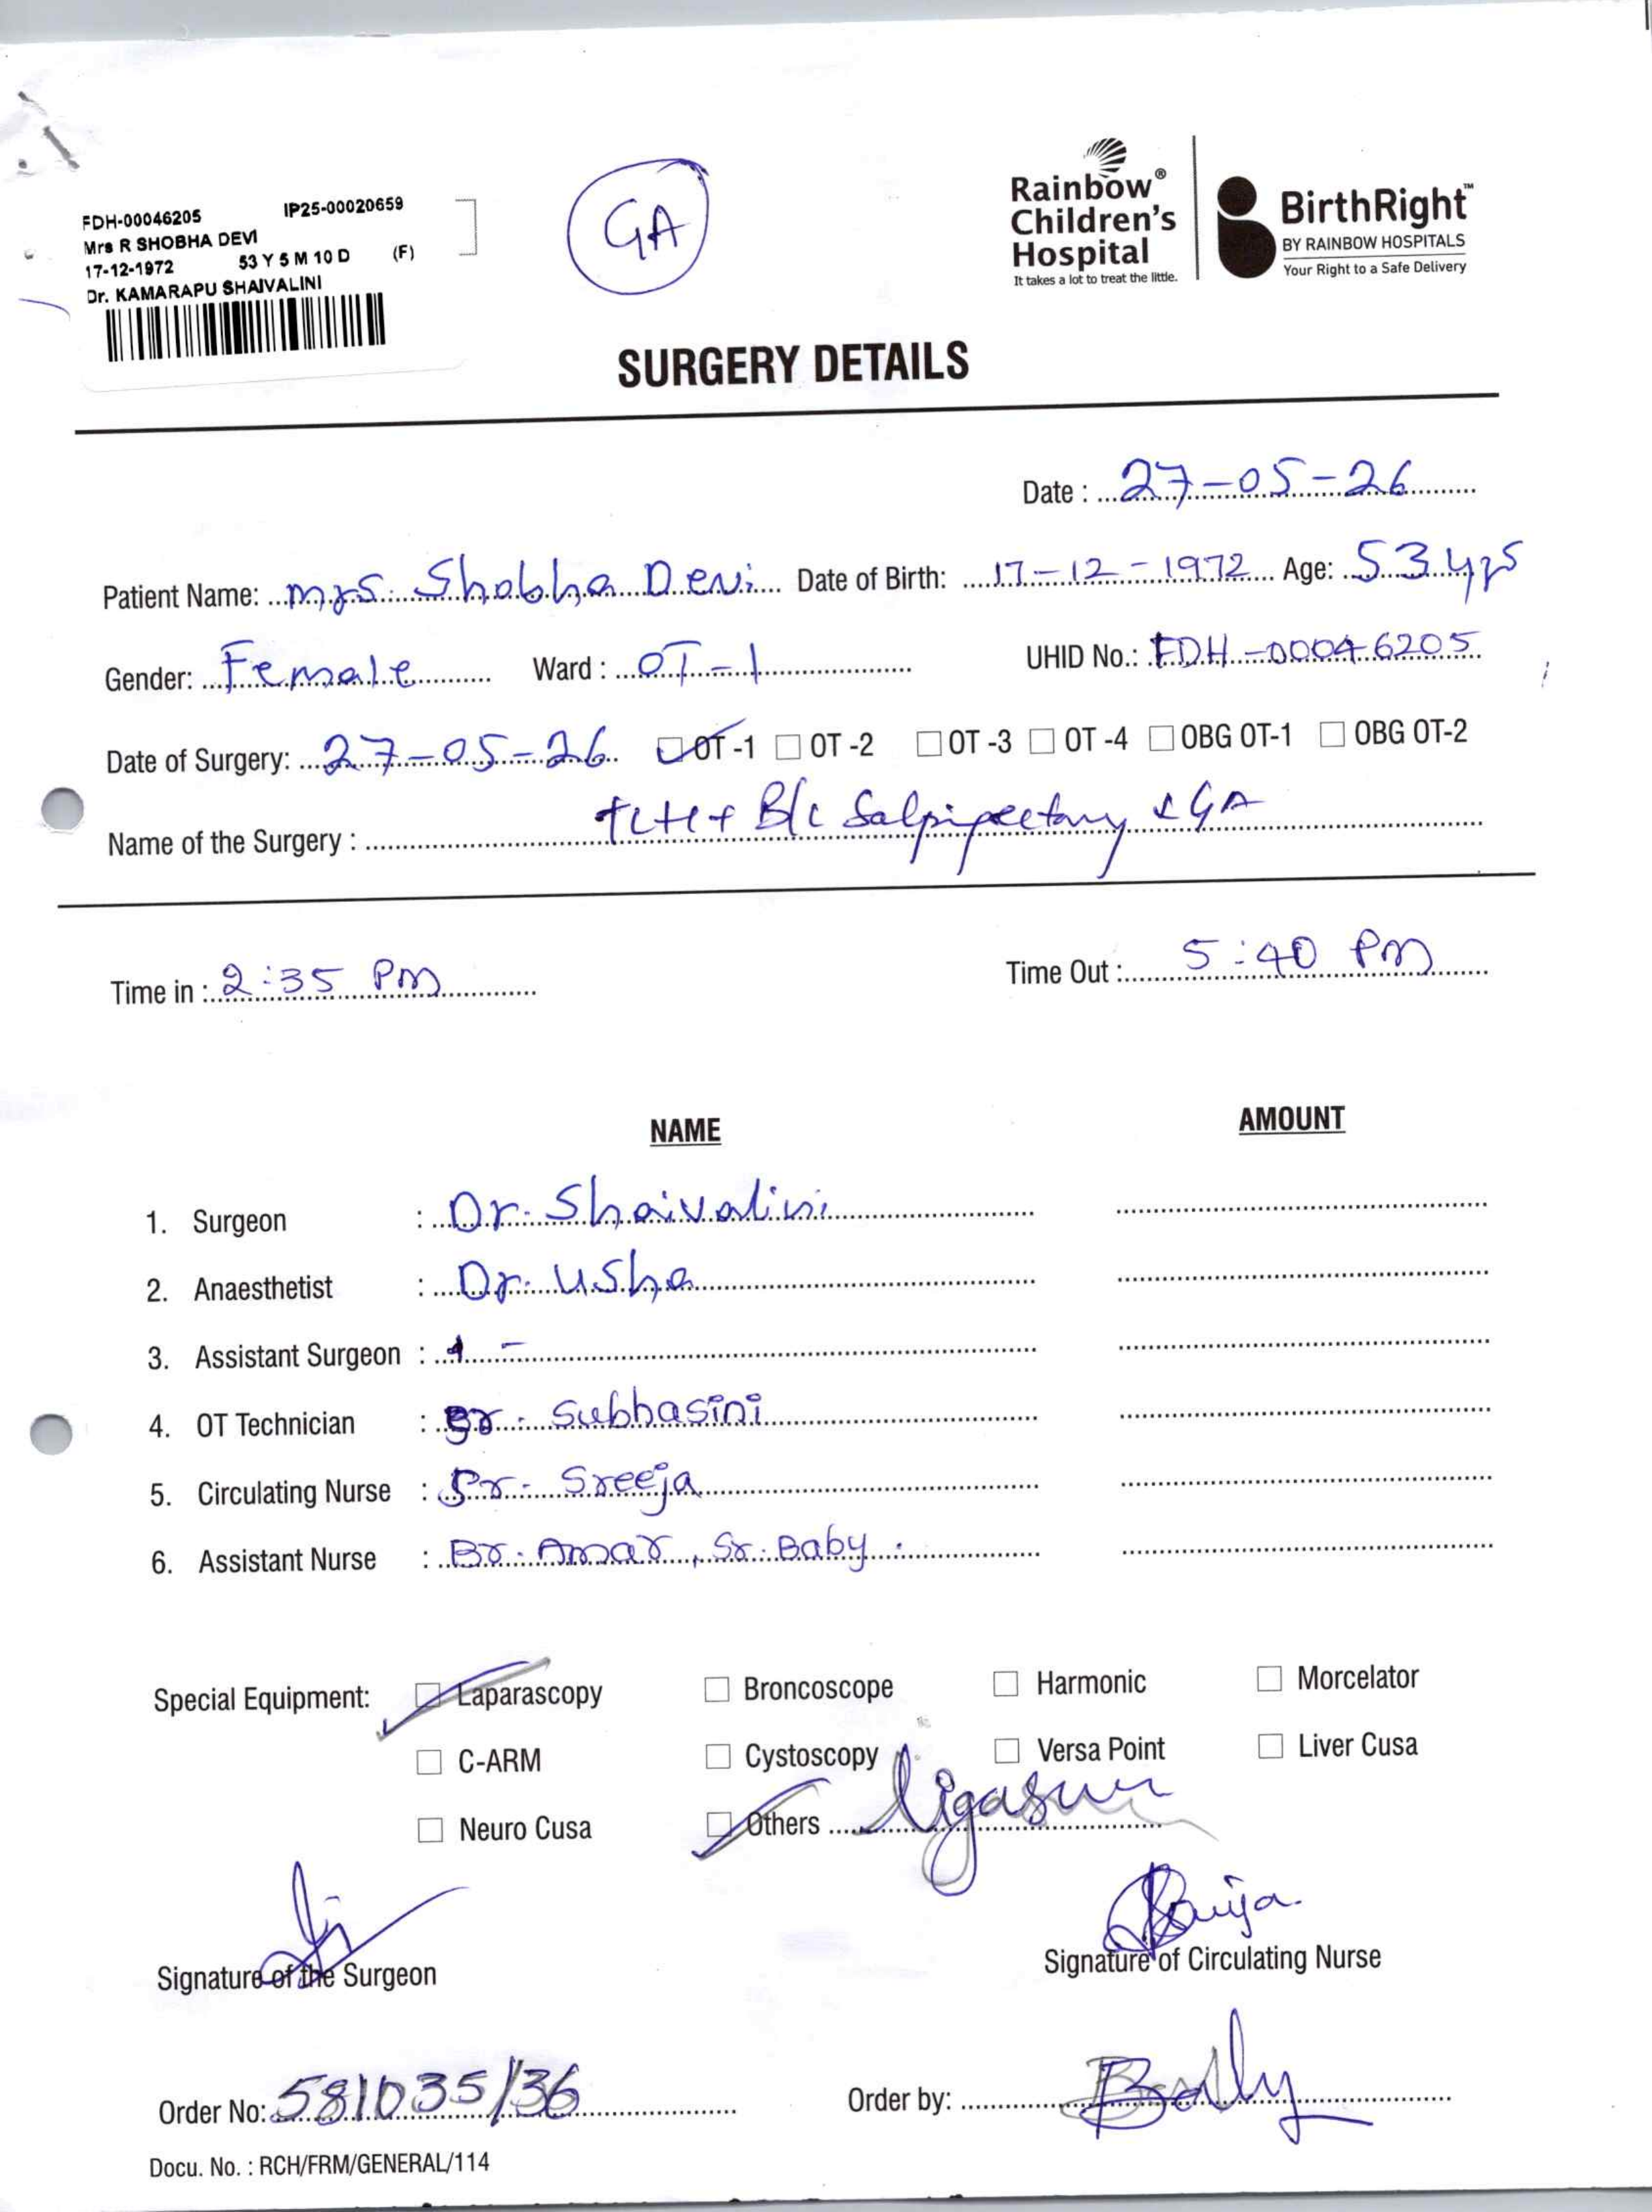 FDH-00046205 IP25-00020659
Mrs R SHOBHA DEVI
17-12-1972 53 Y 5 M 10 D (F)
Dr. KAMARAPU SHAIVALINI
GA
Rainbow®
Children's
Hospital
It takes a lot to treat the little.
BirthRight™
BY RAINBOW HOSPITALS
Your Right to a Safe Delivery
SURGERY DETAILS
Date : 27-05-26
Patient Name: mrs. Shobha Devi Date of Birth: 17-12-1972 Age: 53 yrs
Gender: Female Ward : OT-1 UHID No.: FDH-00046205
Date of Surgery: 27-05-26 OT -1 OT -2 OT -3 OT -4 OBG OT-1 OBG OT-2
Name of the Surgery : B/L GA
Time in : 2:35 PM Time Out : 5:40 PM
NAME AMOUNT
1. Surgeon : Dr. Shaivalini
2. Anaesthetist : Dr. Usha
3. Assistant Surgeon : -
4. OT Technician : Subhasini
5. Circulating Nurse : Sr. Sreeja
6. Assistant Nurse : Br. Amar, Sr. Baby.
Special Equipment: Laparascopy Broncoscope Harmonic Morcelator
C-ARM Cystoscopy Versa Point Liver Cusa
Neuro Cusa Others ligasure
Signature of the Surgeon Signature of Circulating Nurse
Order No: 581035/36 Order by: Baby
Docu. No. : RCH/FRM/GENERAL/114